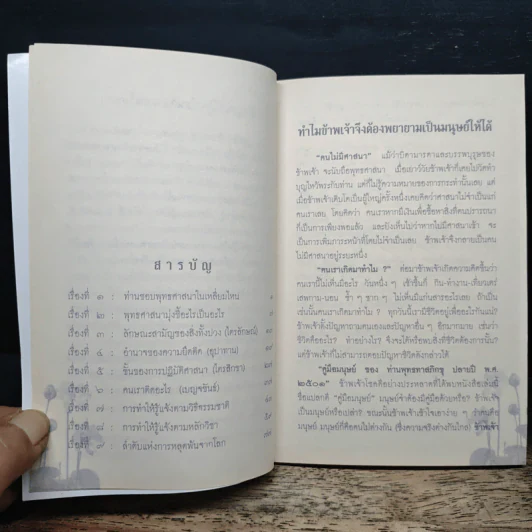 สารบัญ
เรื่องที่ ๑ : ท่านชอบพุทธศาสนาในเหลี่ยมไหน ๑
เรื่องที่ ๒ : พุทธศาสนามุ่งชี้อะไรเป็นอะไร
เรื่องที่ ๓ : ลักษณะสามัญของสิ่งทั้งปวง (ไตรลักษณ์)
เรื่องที่ ๔ : อำนาจของความยึดติด (อุปาทาน)
เรื่องที่ ๕ : ขั้นของการปฏิบัติศาสนา (ไตรสิกขา)
เรื่องที่ ๖ : คนเราติดอะไร (เบญจขันธ์)
เรื่องที่ ๗ : การทำให้รู้แจ้งตามวิธีธรรมชาติ
เรื่องที่ ๘ : การทำให้รู้แจ้งตามหลักวิชา
เรื่องที่ ๙ : ลำดับแห่งการหลุดพ้นจากโลก
ทำไมข้าพเจ้าจึงต้องพยายามเป็นมนุษย์ให้ได้
"คนไม่มีศาสนา" แม้ว่าบิดามารดาและบรรพบุรุษของ
ข้าพเจ้า จะนับถือพุทธศาสนา เมื่อเยาว์วัยข้าพเจ้าก็เคยไปวัดทำ
บุญไหว้พระกับท่าน แต่ก็ไม่รู้ความหมายของการกระทำนั้นเลย แต่
เมื่อข้าพเจ้าเติบโตเป็นผู้ใหญ่ครั้งหนึ่งเคยคิดว่าศาสนาไม่จำเป็นแก่
คนเราเลย โดยคิดว่า คนเราหากมีเงินเพื่อซื้อหาสิ่งที่คนปรารถนา
ก็เป็นการเพียงพอแล้ว และยังเห็นไปว่าหากไม่มีศาสนาเข้า จะ
เป็นการเพิ่มภาระหน้าที่โดยไม่จำเป็นเลย ข้าพเจ้าจึงกลายเป็นคน
ไม่มีศาสนาอยู่ระยะหนึ่ง
"คนเราเกิดมาทำไม ?" ต่อมาข้าพเจ้าเกิดความคิดขึ้นว่า
คนเรานี้ไม่เห็นมีอะไร วันหนึ่ง ๆ เช้าขึ้นก็ กิน-ทำงาน-เที่ยวเตร่
เสพกาม-นอน ซ้ำ ๆ ซาก ๆ ไม่เห็นมีแก่นสารอะไรเลย ถ้าเป็น
เช่นนั้นคนเราเกิดมาทำไม ? ทุกวันนี้เรามีชีวิตอยู่เพื่ออะไรกันแน่?
ข้าพเจ้าตั้งปัญหาถามตนเองและปัญหาอื่น ๆ อีกมากมาย เช่นว่า
ชีวิตคืออะไร? ทำอย่างไร? จึงจะได้พร้อมพบถึงสิ่งที่ชีวิตต้องการนั้น?
แต่ข้าพเจ้าก็ไม่สามารถตอบปัญหาชีวิตดังกล่าวได้
"คู่มือมนุษย์ ของ ท่านพุทธทาสภิกขุ ปลายปี พ.ศ.
๒๕๑๓" ข้าพเจ้าโชคดีอย่างประหลาดที่ได้พบหนังสือเล่มนี้
ชื่อแปลกดี "คู่มือมนุษย์" มนุษย์จำต้องมีคู่มือด้วยหรือ? ข้าพเจ้า
เป็นมนุษย์หรือเปล่า? ขณะนั้นข้าพเจ้าเข้าใจเอาง่าย ๆ ว่าคนคือ
มนุษย์ มนุษย์ก็คือคนไม่ต่างกัน (ซึ่งความจริงต่างกันไกล) ข้าพเจ้า